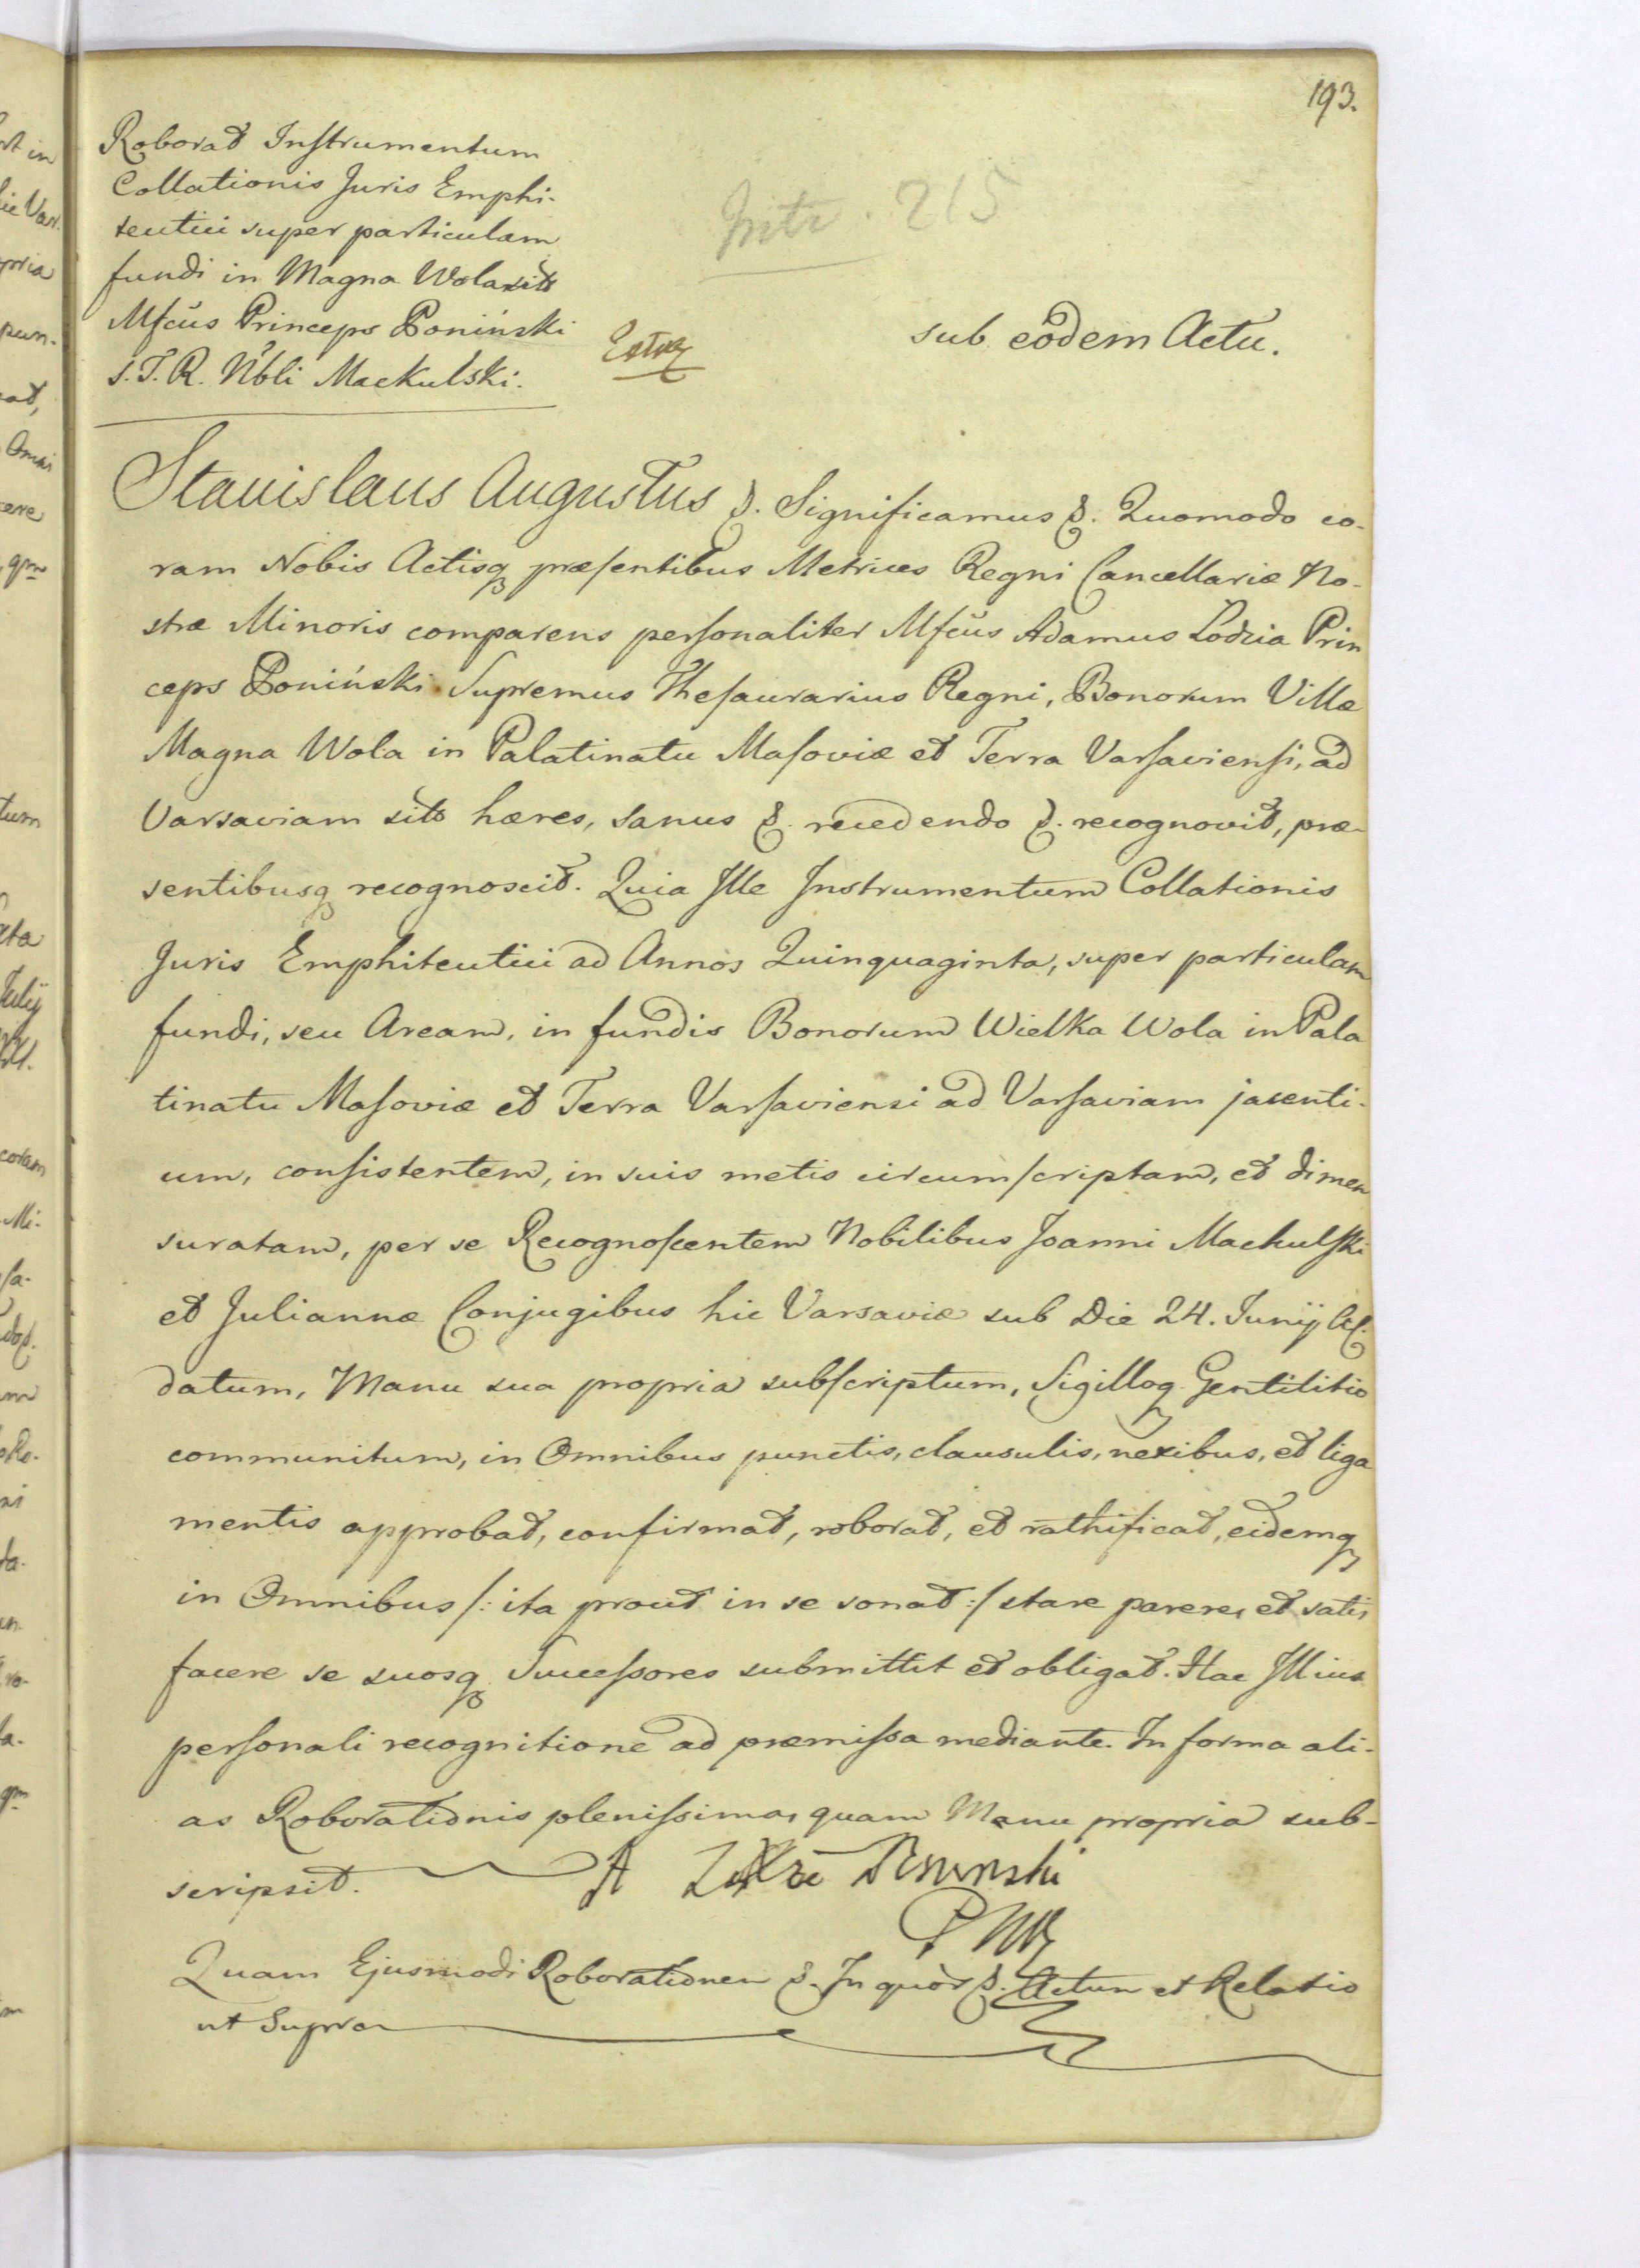 193.
Roborat Instrumentum
Collationis Juris Emphi-
teutici super particulam
fundi in Magna Wola sits
Mfcus Princeps Poniński
S.T.R. Nbli Mackulski.
Intr. 215
Extra
sub eodem Actu.
Stanislaus Augustus &. Significamus &. Quomodo co-
ram Nobis Actisq præsentibus Metrices Regni Cancellariæ No-
stræ Minoris comparens personaliter Mfcus Adamus Lodzia Prin
ceps Poniński Supremus Thesaurarius Regni, Bonorum Villæ
Magna Wola in Palatinatu Masoviæ et Terra Varsaviensi, ad
Varsaviam sits hæres, sanus &. recedendo &. recognovit, præ-
sentibusq recognoscit. Quia Ille Instrumentum Collationis
Juris Emphiteutici ad Annos Quinquaginta, super particulam
fundi, seu Aream, in fundis Bonorum Wielka Wola in Pala
tinatu Masoviæ et Terra Varsaviensi ad Varsaviam jacenti-
um, consistentem, in suis metis circumscriptam, et dimen
suratam, per se Recognoscentem Nobilibus Joanni Mackulski
et Juliannæ Conjugibus hic Varsaviæ sub Die 24. Junij
datum, Manu sua propria subscriptum, Sigilloq Gentilitio
communitum, in Omnibus punctis, clausulis, nexibus, et liga
mentis approbat, confirmat, roborat, et rathificat, eidemq
in Omnibus /: ita prout in se sonat :/ stare parere, et satis
facere se suosq Successores submittit et obligat. Hac Illius
personali recognitione ad præmissa mediante. In forma ali-
as Roborationis plenissima, quam Manu propria sub-
scripsit. A Poninski
Quam Ejusmodi Roborationem &. In quor &. Actum et Relatio
ut Supra